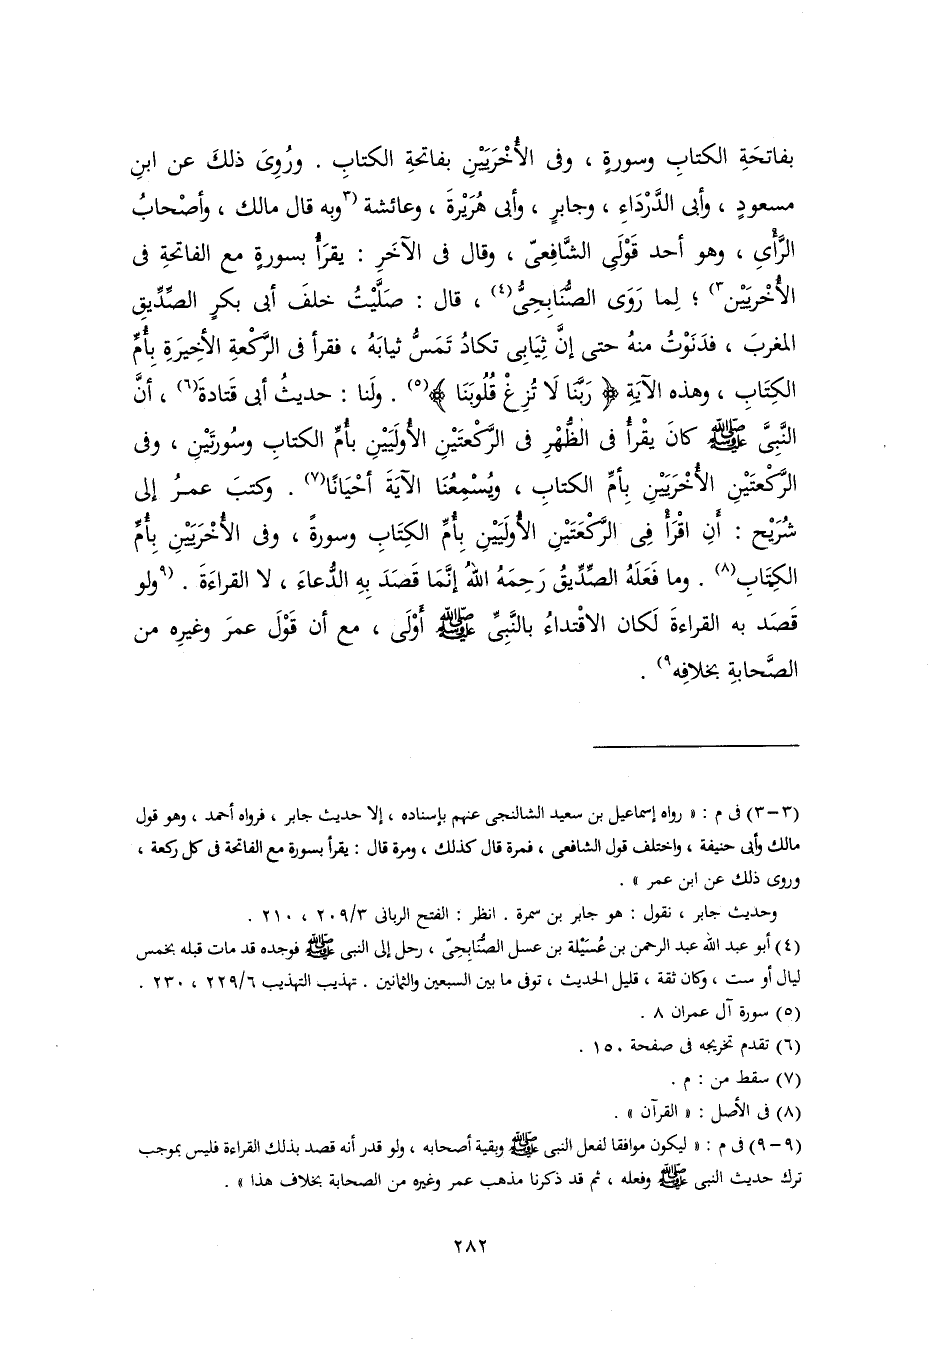 بفاتحَةِ الكتابِ وسورةٍ ، وفى الأُخْرَيَيْنِ بفاتحةِ الكتابِ . ورُوِىَ ذلكَ عن ابنِ
مسعودٍ ، وأبى الدَّرْدَاءِ ، وجابرٍ ، وأبى هُرَيْرةَ ، وعائشة (٣وبه قال مالك ، وأصْحابُ
الرَّأْىِ ، وهو أحد قَوْلَىِ الشَّافِعىّ ، وقال فى الآخَرِ : يقرَأُ بسورةٍ مع الفاتحةِ فى
الأُخْريَيْن٣) ؛ لِما رَوَى الصُّنَابِحِىُّ(٤) ، قال : صَلَّيْتُ خلفَ أبى بكرٍ الصِّدِّيقِ
المغربَ ، فدَنَوْتُ منهُ حتى إنَّ ثِيَابِى تكادُ تَمَسُّ ثيابَهُ ، فقرأ فى الرَّكْعةِ الأخِيرَةِ بأُمِّ
الكِتَابِ ، وهذه الآيَةِ ﴿ رَبَّنَا لَا تُزِغْ قُلُوبَنَا ﴾(٥) . ولَنا : حديثُ أبى قَتادةَ(٦) ، أنَّ
النَّبِىَّ ﷺ كانَ يقْرأُ فى الظُّهْرِ فى الرَّكْعتَيْنِ الأُولَيَيْنِ بأُمِّ الكتابِ وسُورتَيْنِ ، وفى
الرَّكْعتَيْنِ الأُخْرَيَيْنِ بِأمِّ الكتابِ ، ويُسْمِعُنَا الآيَةَ أحْيَانًا(٧) . وكتبَ عمرُ إلى
شُرَيْحٍ : أَنِ اقْرَأْ فِى الرَّكْعَتَيْنِ الأُولَيَيْنِ بِأُمِّ الكِتَابِ وسورةً ، وفى الأُخْرَيَيْنِ بأُمِّ
الكِتَابِ(٨) . وما فَعَلَهُ الصِّدِّيقُ رَحِمَهُ اللهُ إنَّمَا قَصَدَ بِهِ الدُّعاءَ ، لا القراءَةَ . (٩ولو
قَصَد به القراءةَ لَكان الاقْتداءُ بالنَّبِىِّ ﷺ أَوْلَى ، مع أن قَوْلَ عمرَ وغيرِه من
الصَّحابةِ بخلافِه٩) .
(٣-٣) فى م : « رواه إسماعيل بن سعيد الشالنجى عنهم بإسناده ، إلا حديث جابر ، فرواه أحمد ، وهو قول
مالك وأبى حنيفة ، واختلف قول الشافعى ، فمرة قال كذلك ، ومرة قال : يقرأ بسورة مع الفاتحة فى كل ركعة ،
وروى ذلك عن ابن عمر » .
وحديث جابر ، نقول : هو جابر بن سمرة . انظر : الفتح الربانى ٢٠٩/٣ ، ٢١٠ .
(٤) أبو عبد الله عبد الرحمن بن عُسَيْلة بن عسل الصُّنابحِىّ ، رحل إلى النبى ﷺ فوجده قد مات قبله بخمس
ليال أو ست ، وكان ثقة ، قليل الحديث ، توفى ما بين السبعين والثمانين . تهذيب التهذيب ٢٢٩/٦ ، ٢٣٠ .
(٥) سورة آل عمران ٨ .
(٦) تقدم تخريجه فى صفحة ١٥٠ .
(٧) سقط من : م .
(٨) فى الأصل : « القرآن » .
(٩-٩) فى م : « ليكون موافقا لفعل النبى ﷺ وبقية أصحابه ، ولو قدر أنه قصد بذلك القراءة فليس بموجب
ترك حديث النبى ﷺ وفعله ، ثم قد ذكرنا مذهب عمر وغيره من الصحابة بخلاف هذا » .
٢٨٢